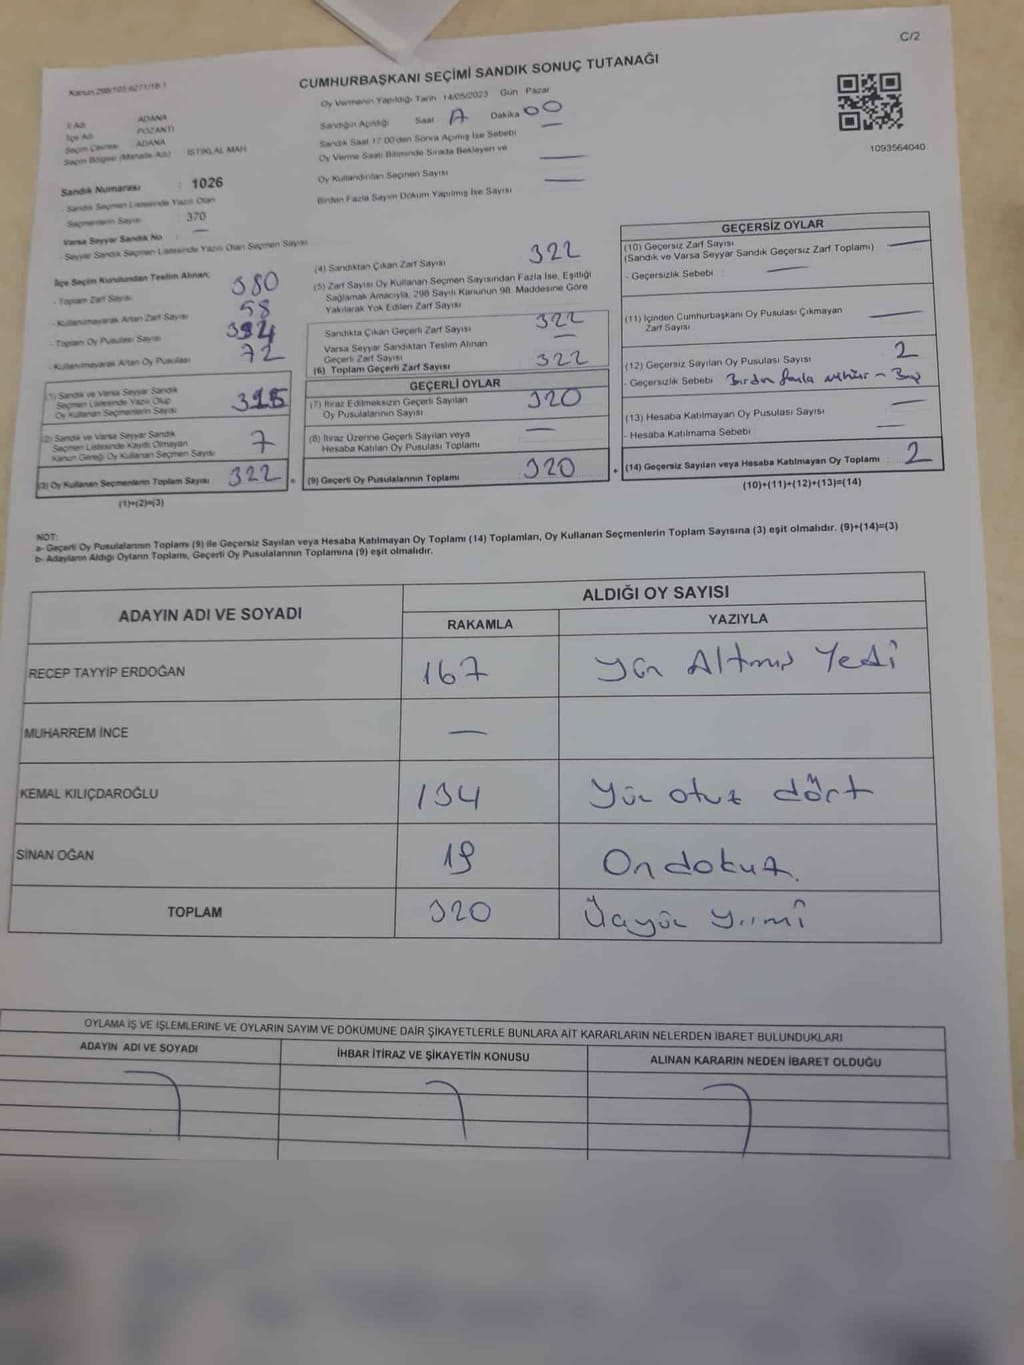 C/2
Kanun:298/105,6271/18-1
CUMHURBAŞKANI SEÇİMİ SANDIK SONUÇ TUTANAĞI
Oy Vermenin Yapıldığı Tarih 14/05/2023 Gün Pazar
İl Adı ADANA
İlçe Adı POZANTI
Seçim Çevresi ADANA
Seçim Bölgesi (Mahalle Adı) İSTİKLAL MAH
Sandığın Açıldığı Saat Dakika 00
Sandık Saat 17:00'den Sonra Açılmış İse Sebebi —
Oy Verme Saati Bitiminde Sırada Bekleyen ve
Oy Kullandırılan Seçmen Sayısı —
Birden Fazla Sayım Döküm Yapılmış İse Sayısı —
1093564040
Sandık Numarası : 1026
- Sandık Seçmen Listesinde Yazılı Olan
Seçmenlerin Sayısı : 370
Varsa Seyyar Sandık No : —
- Seyyar Sandık Seçmen Listesinde Yazılı Olan Seçmen Sayısı
İlçe Seçim Kurulundan Teslim Alınan;
- Toplam Zarf Sayısı 380
- Kullanılmayarak Artan Zarf Sayısı 58
- Toplam Oy Pusulası Sayısı 394
- Kullanılmayarak Artan Oy Pusulası 72
(1) Sandık ve Varsa Seyyar Sandık
Seçmen Listesinde Yazılı Olup
Oy Kullanan Seçmenlerin Sayısı 315
(2) Sandık ve Varsa Seyyar Sandık
Seçmen Listesinde Kayıtlı Olmayan
Kanun Gereği Oy Kullanan Seçmen Sayısı 7
(3) Oy Kullanan Seçmenlerin Toplam Sayısı 322 =
(1)+(2)=(3)
(4) Sandıktan Çıkan Zarf Sayısı 322
(5) Zarf Sayısı Oy Kullanan Seçmen Sayısından Fazla İse, Eşitliği
Sağlamak Amacıyla, 298 Sayılı Kanunun 98. Maddesine Göre
Yakılarak Yok Edilen Zarf Sayısı
Sandıkta Çıkan Geçerli Zarf Sayısı 322
Varsa Seyyar Sandıktan Teslim Alınan
Geçerli Zarf Sayısı —
(6) Toplam Geçerli Zarf Sayısı 322
GEÇERLİ OYLAR
(7) İtiraz Edilmeksizin Geçerli Sayılan
Oy Pusulalarının Sayısı 320
(8) İtiraz Üzerine Geçerli Sayılan veya
Hesaba Katılan Oy Pusulası Toplamı —
(9) Geçerli Oy Pusulalarının Toplamı 320 +
GEÇERSİZ OYLAR
(10) Geçersiz Zarf Sayısı
(Sandık ve Varsa Seyyar Sandık Geçersiz Zarf Toplamı) —
- Geçersizlik Sebebi —
(11) İçinden Cumhurbaşkanı Oy Pusulası Çıkmayan
Zarf Sayısı —
(12) Geçersiz Sayılan Oy Pusulası Sayısı 2
- Geçersizlik Sebebi Birden fazla mühür -
(13) Hesaba Katılmayan Oy Pusulası Sayısı —
- Hesaba Katılmama Sebebi —
(14) Geçersiz Sayılan veya Hesaba Katılmayan Oy Toplamı 2
(10)+(11)+(12)+(13)=(14)
NOT:
a- Geçerli Oy Pusulalarının Toplamı (9) ile Geçersiz Sayılan veya Hesaba Katılmayan Oy Toplamı (14) Toplamları, Oy Kullanan Seçmenlerin Toplam Sayısına (3) eşit olmalıdır. (9)+(14)=(3)
b- Adayların Aldığı Oyların Toplamı, Geçerli Oy Pusulalarının Toplamına (9) eşit olmalıdır.
ADAYIN ADI VE SOYADI
ALDIĞI OY SAYISI
RAKAMLA YAZIYLA
RECEP TAYYİP ERDOĞAN 167 Yüz Altmış Yedi
MUHARREM İNCE —
KEMAL KILIÇDAROĞLU 134 Yüz otuz dört
SİNAN OĞAN 19 Ondokuz.
TOPLAM 320 Üçyüz Yirmi
OYLAMA İŞ VE İŞLEMLERİNE VE OYLARIN SAYIM VE DÖKÜMÜNE DAİR ŞİKAYETLERLE BUNLARA AİT KARARLARIN NELERDEN İBARET BULUNDUKLARI
ADAYIN ADI VE SOYADI İHBAR İTİRAZ VE ŞİKAYETİN KONUSU ALINAN KARARIN NEDEN İBARET OLDUĞU